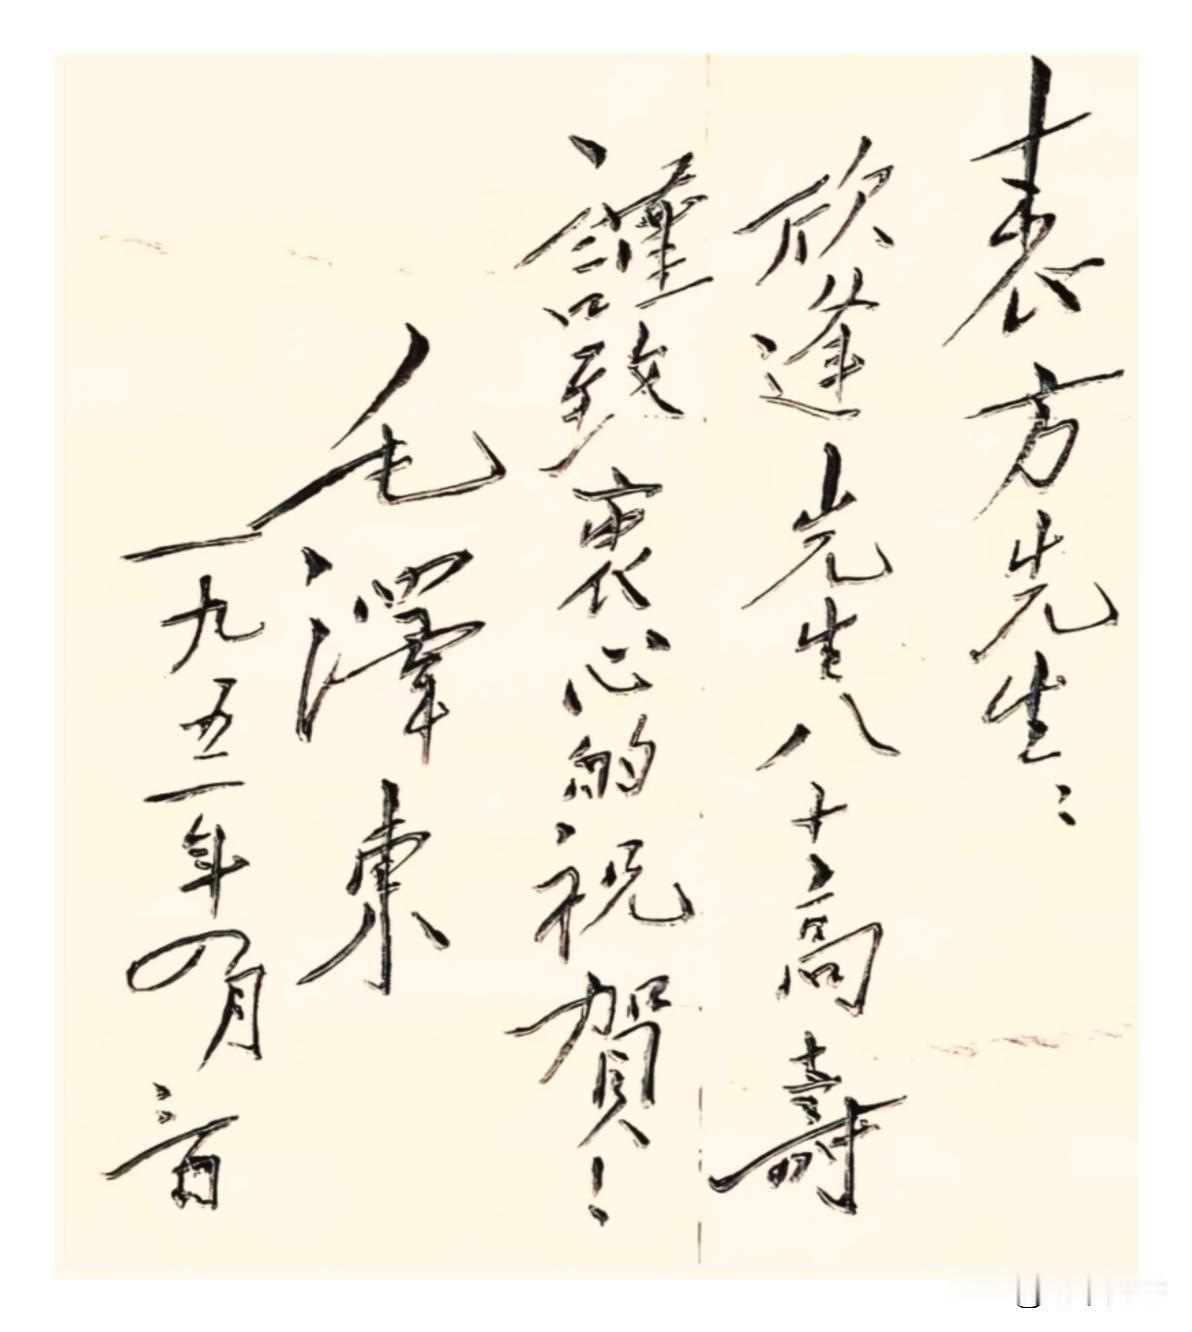 表方先生：
欣逢先生八十高壽
謹致衷心的祝賀！
毛澤東
一九五一年四月三日